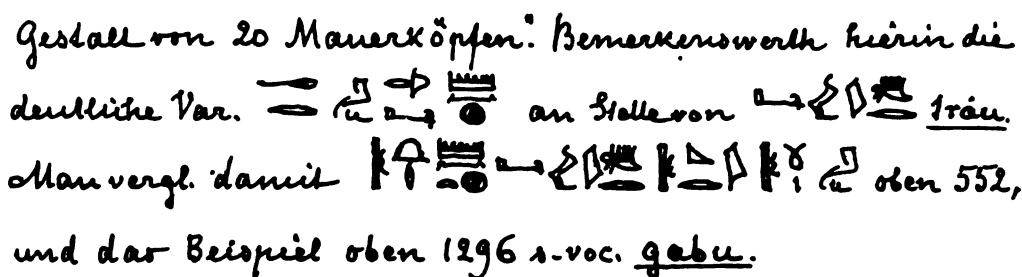 Gestalt von 20 Mauerköpfen". Bemerkenswerth hierin die
deutliche Var. an Stelle von
Man vergl. damit oben 552,
und das Beispiel oben 1296 s. voc. gabu.